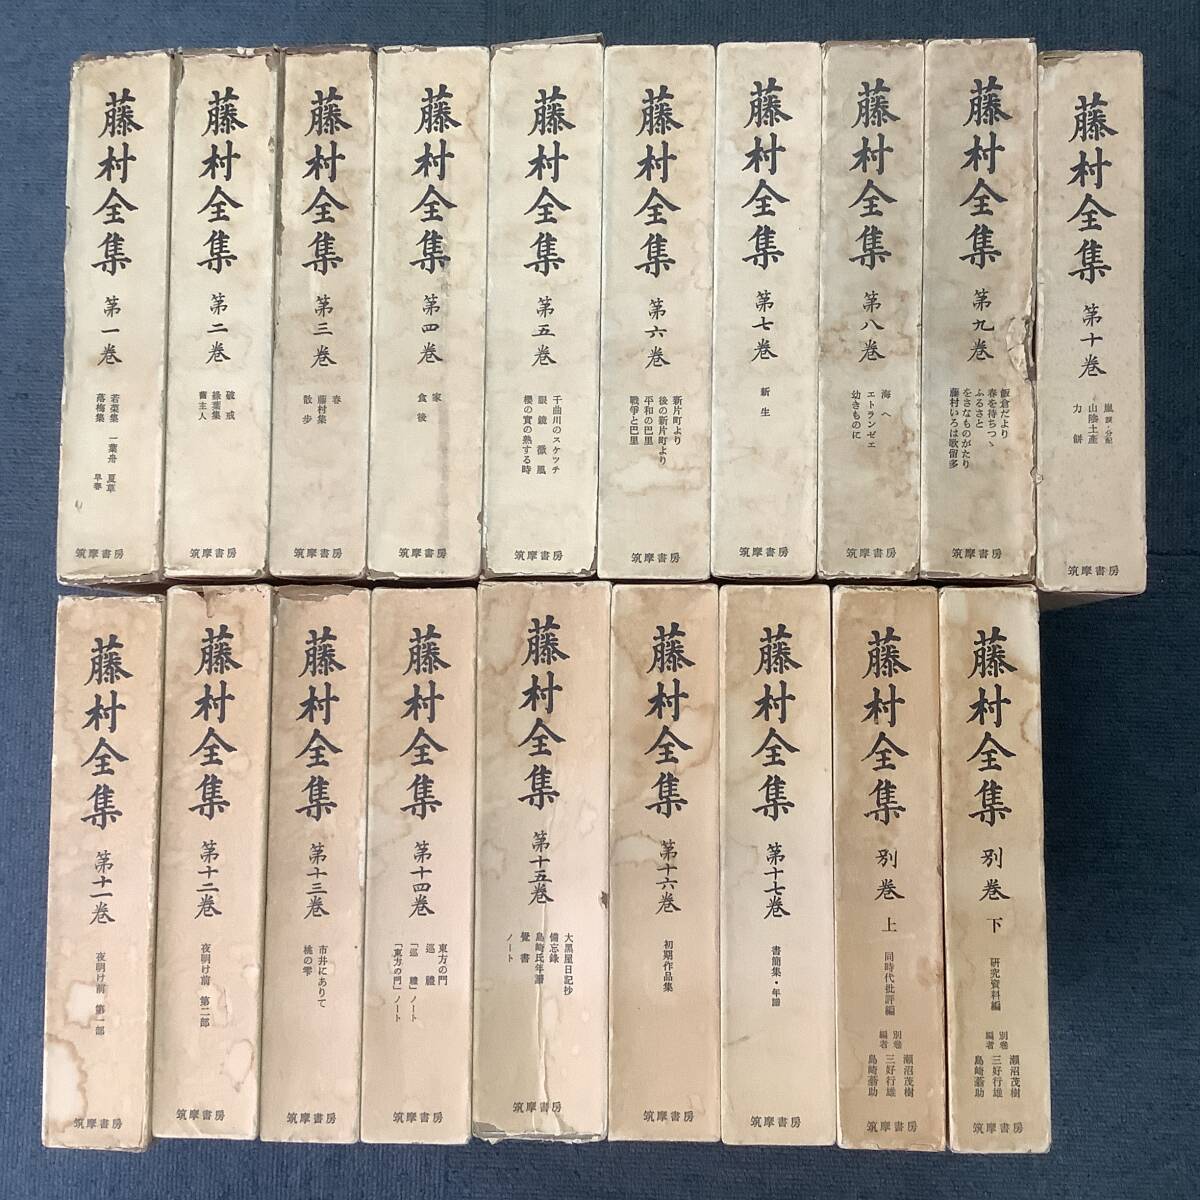 藤村全集
第一巻
若菜集 一葉舟 夏草
落梅集 早春
筑摩書房
藤村全集
第二巻
破戒
緑葉集
舊主人
筑摩書房
藤村全集
第三巻
春
藤村集
散歩
筑摩書房
藤村全集
第四巻
家
食後
筑摩書房
藤村全集
第五巻
千曲川のスケッチ
眼鏡 微風
櫻の實の熟する時
筑摩書房
藤村全集
第六巻
新片町より
後の新片町より
平和の巴里
戰爭と巴里
筑摩書房
藤村全集
第七巻
新生
筑摩書房
藤村全集
第八巻
海へ
エトランゼエ
幼きものに
筑摩書房
藤村全集
第九巻
飯倉だより
春を待ちつゝ
ふるさと
をさなものがたり
藤村いろは歌留多
筑摩書房
藤村全集
第十巻
嵐 涙・分配
山陰土産
力餅
筑摩書房
藤村全集
第十一巻
夜明け前 第一部
筑摩書房
藤村全集
第十二巻
夜明け前 第二部
筑摩書房
藤村全集
第十三巻
市井にありて
桃の雫
筑摩書房
藤村全集
第十四巻
東方の門
巡禮
「巡禮」ノート
「東方の門」ノート
筑摩書房
藤村全集
第十五巻
大黒屋日記抄
備忘錄
島崎氏年譜
覺書
ノート
筑摩書房
藤村全集
第十六巻
初期作品集
筑摩書房
藤村全集
第十七巻
書簡集・年譜
筑摩書房
藤村全集
別巻
上
同時代批評編
別巻
編者
瀬沼茂樹
三好行雄
島崎蓊助
筑摩書房
藤村全集
別巻
下
研究資料編
別巻
編者
瀬沼茂樹
三好行雄
島崎蓊助
筑摩書房